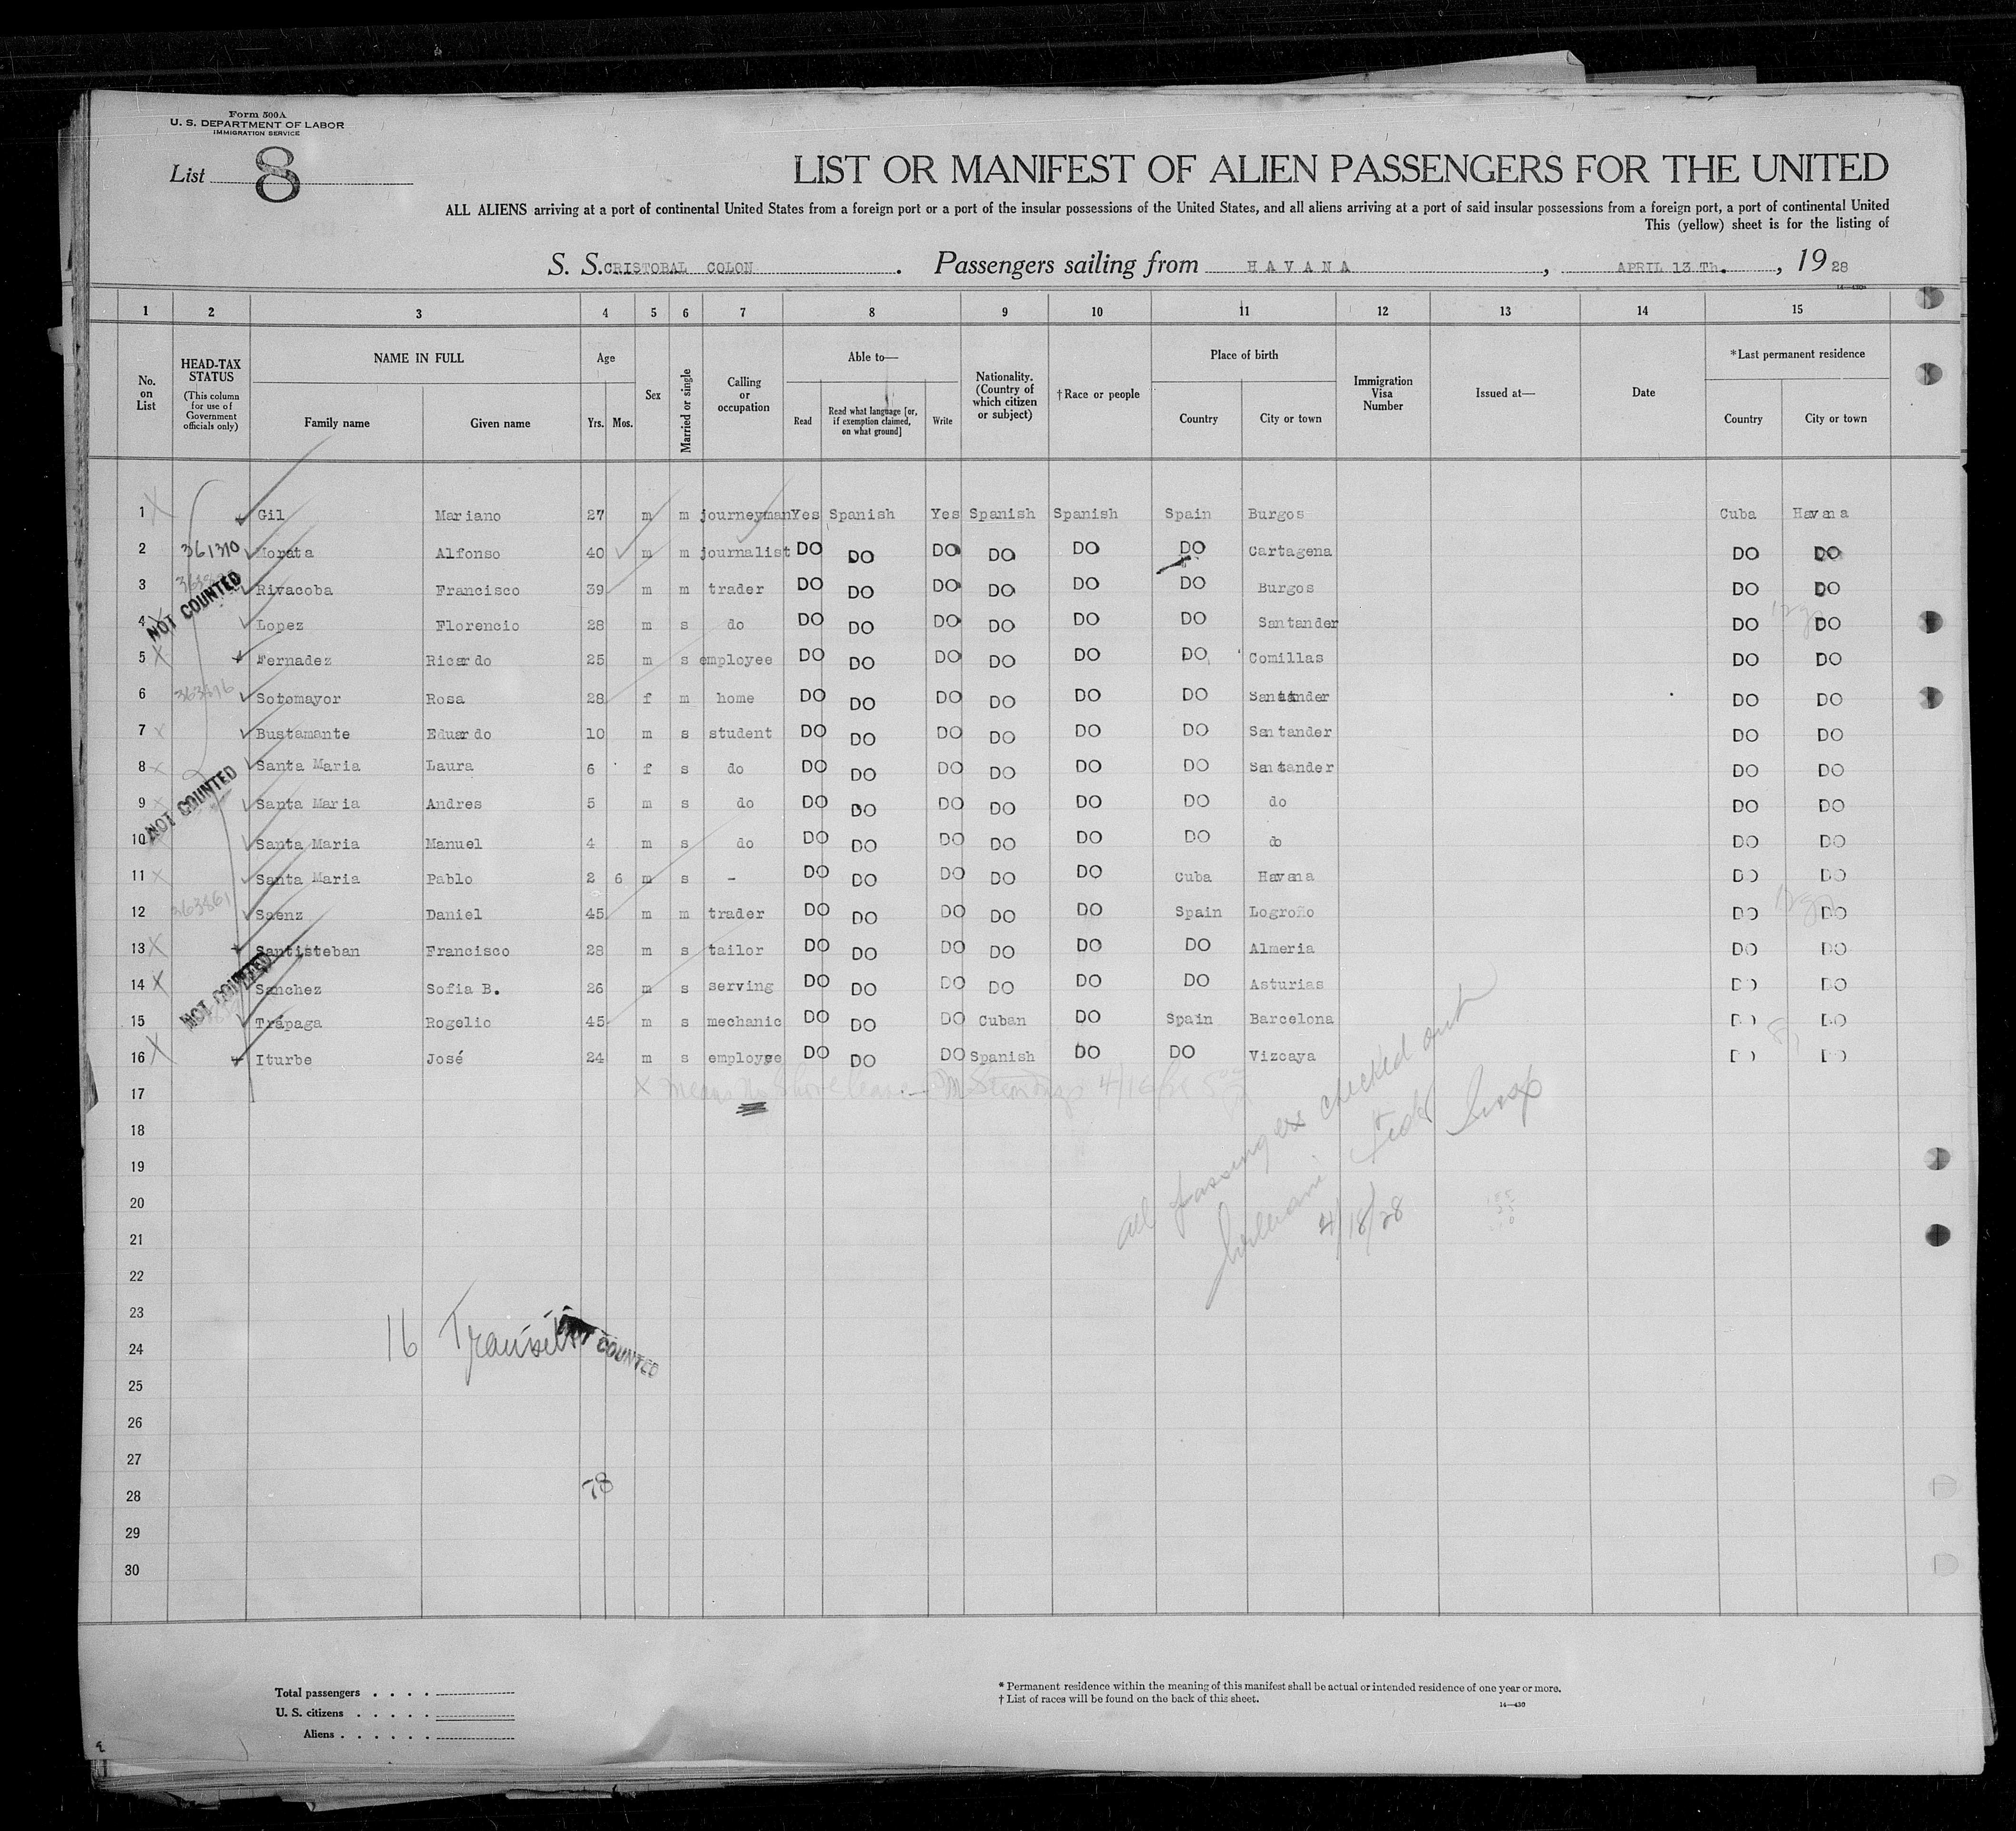 Form 500A
U. S. DEPARTMENT OF LABOR
IMMIGRATION SERVICE
List 8
LIST OR MANIFEST OF ALIEN PASSENGERS FOR THE UNITED
ALL ALIENS arriving at a port of continental United States from a foreign port or a port of the insular possessions of the United States, and all aliens arriving at a port of said insular possessions from a foreign port, a port of continental United
This (yellow) sheet is for the listing of
S. S. CRISTOBAL COLON. Passengers sailing from HAVANA, APRIL 13 Th., 1928
14—430
1 2 3 4 5 6 7 8 9 10 11 12 13 14 15
No. on List
HEAD-TAX STATUS
(This column for use of Government officials only)
NAME IN FULL
Family name Given name
Age
Yrs. Mos.
Sex
Married or single
Calling or occupation
Able to—
Read
Read what language [or, if exemption claimed, on what ground]
Write
Nationality. (Country of which citizen or subject)
†Race or people
Place of birth
Country City or town
Immigration Visa Number
Issued at—
Date
*Last permanent residence
Country City or town
1 X Gil Mariano 27 m m journeyman Yes Spanish Yes Spanish Spanish Spain Burgos Cuba Havana
2 361310 Morata Alfonso 40 m m journalist DO DO DO DO DO DO Cartagena DO DO
3 Rivacoba Francisco 39 m m trader DO DO DO DO DO DO Burgos DO DO
NOT COUNTED
4 X Lopez Florencio 28 m s do DO DO DO DO DO DO Santander DO DO
5 X Fernadez Ricardo 25 m s employee DO DO DO DO DO DO Comillas DO DO
6 363876 Sotomayor Rosa 28 f m home DO DO DO DO DO DO Santander DO DO
7 X Bustamante Eduardo 10 m s student DO DO DO DO DO DO Santander DO DO
8 X Santa Maria Laura 6 f s do DO DO DO DO DO DO Santander DO DO
NOT COUNTED
9 X Santa Maria Andres 5 m s do DO DO DO DO DO DO do DO DO
10 Santa Maria Manuel 4 m s do DO DO DO DO DO DO do DO DO
11 X Santa Maria Pablo 2 6 m s - DO DO DO DO DO Cuba Havana DO DO
12 363861 Saenz Daniel 45 m m trader DO DO DO DO DO Spain Logroño DO DO
13 X Santisteban Francisco 28 m s tailor DO DO DO DO DO DO Almeria DO DO
NOT COUNTED
14 X Sanchez Sofia B. 26 m s serving DO DO DO DO DO DO Asturias DO DO
15 Trápaga Rogelio 45 m s mechanic DO DO DO Cuban DO Spain Barcelona DO DO
16 X Iturbe José 24 m s employee DO DO DO Spanish DO DO Vizcaya DO DO
17 X means no Shore leave 4/16/28
18
19
20
21
22
23
24
25
26
27
28
29
30
all passengers checked out
4/18/28
16 Transit
NOT COUNTED
78
Total passengers . . . .
U. S. citizens . . . . .
Aliens . . . . . .
* Permanent residence within the meaning of this manifest shall be actual or intended residence of one year or more.
† List of races will be found on the back of this sheet.
14—430